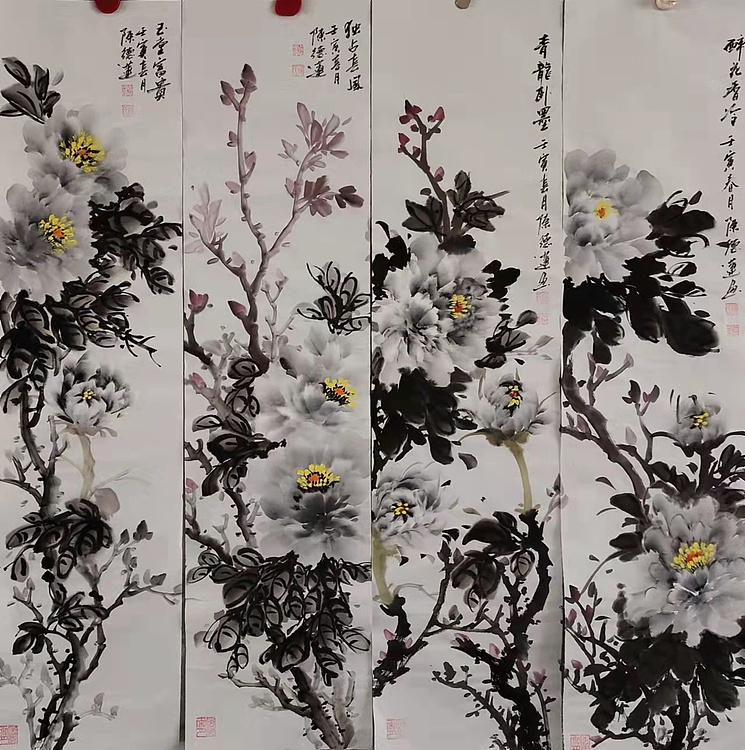 玉堂富贵
壬寅春月
陈德莲
独占春风
壬寅春月
陈德莲
青龍卧墨 壬寅春月陈德莲画
醉花香冷 壬寅春月陈德莲画